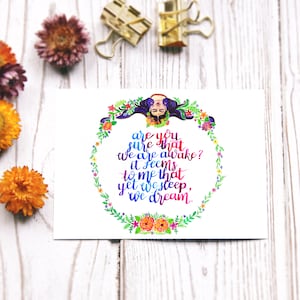 are you
sure that
we are awake?
it seems
to me that
yet we sleep,
we dream